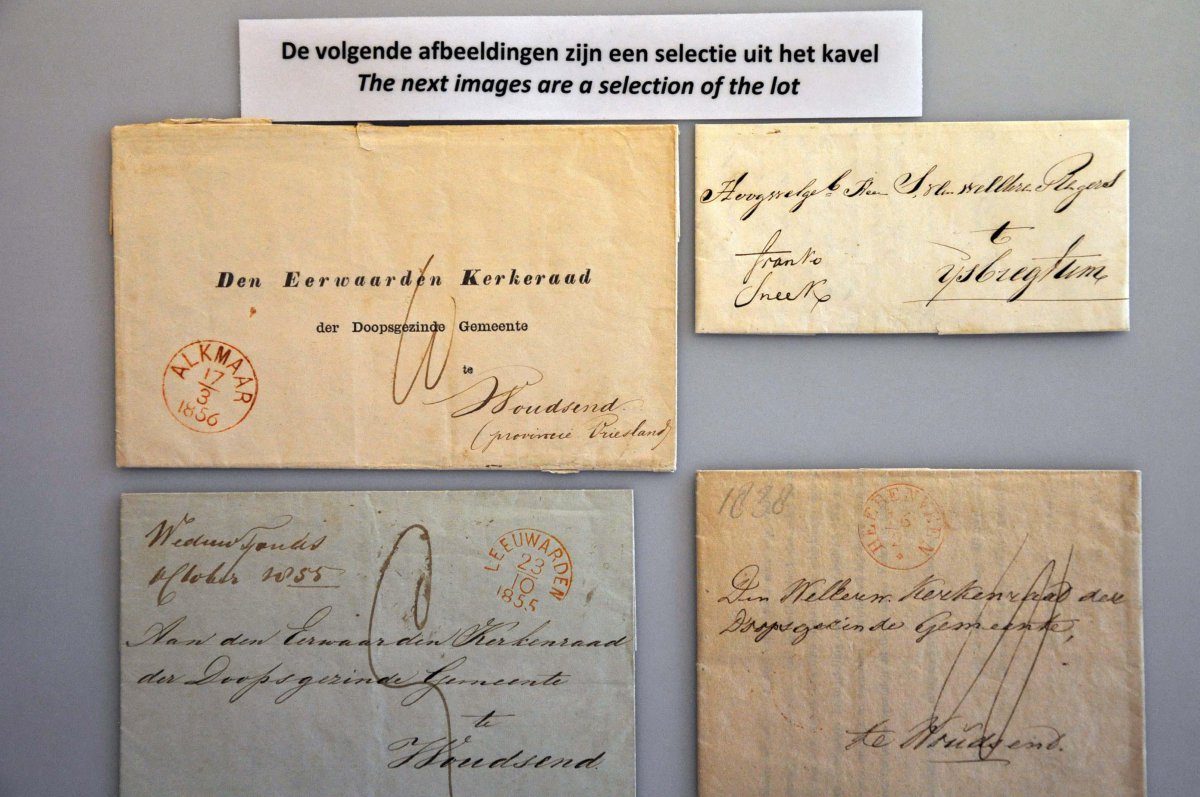 De volgende afbeeldingen zijn een selectie uit het kavel
The next images are a selection of the lot
Den Eerwaarden Kerkeraad
der Doopsgezinde Gemeente
te
Woudsend.
(provincie Vriesland)
ALKMAAR
17
3
1856
Hoogwelge
S. van Welderen Rengers
t
ysbregtum
franko
Sneek
Weduw fonds
October 1855
LEEUWARDEN
23
10
1855
Aan den Eerwaarden Kerkenraad
der Doopsgezinde Gemeente
te
Woudsend.
1838
HEERENVEEN
Den Welleerw. Kerkenraad der
Doopsgezinde Gemeente,
te Woudsend.